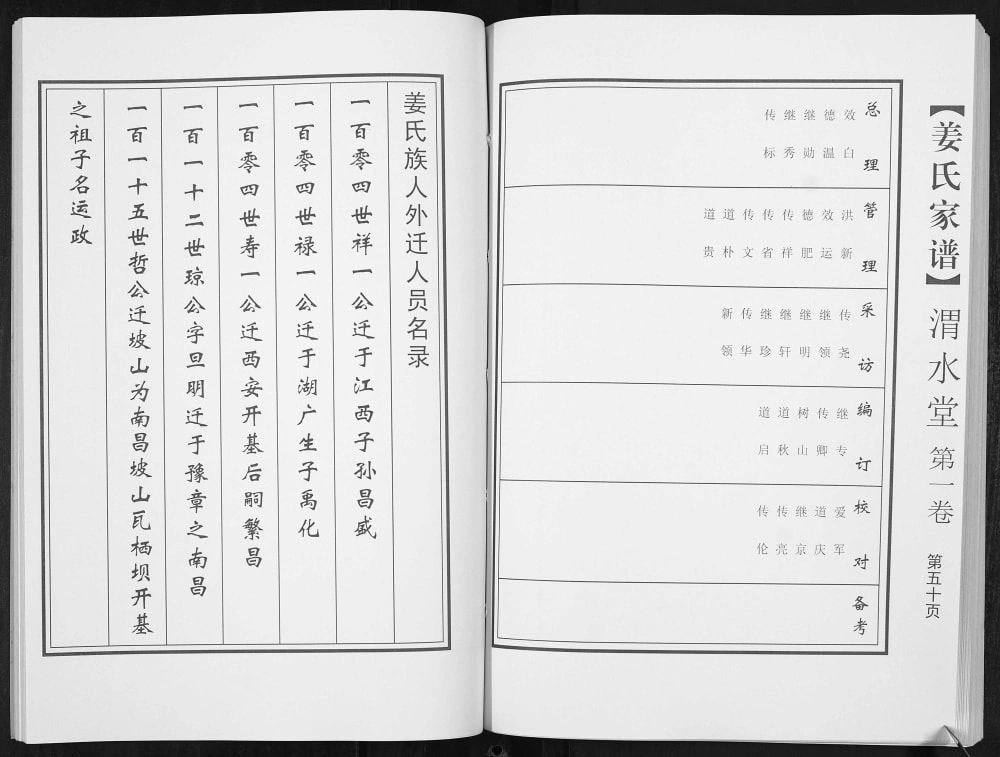 【姜氏家谱】渭水堂 第一卷 第五十页
总理
效白
德温
继勋
继秀
传标
管理
洪新
效运
德肥
传祥
传省
传文
道朴
道贵
采访
传尧
继领
继明
继轩
继珍
传华
新领
编订
继专
传卿
树山
道秋
道启
校对
爱军
道庆
继京
传亮
传伦
备考
姜氏族人外迁人员名录
一百零四世祥一公迁于江西子孙昌盛
一百零四世禄一公迁于湖广生子禹化
一百零四世寿一公迁西安开基后嗣繁昌
一百一十二世琼公字旦明迁于豫章之南昌
一百一十五世哲公迁坡山为南昌坡山瓦栖坝开基
之祖子名运政